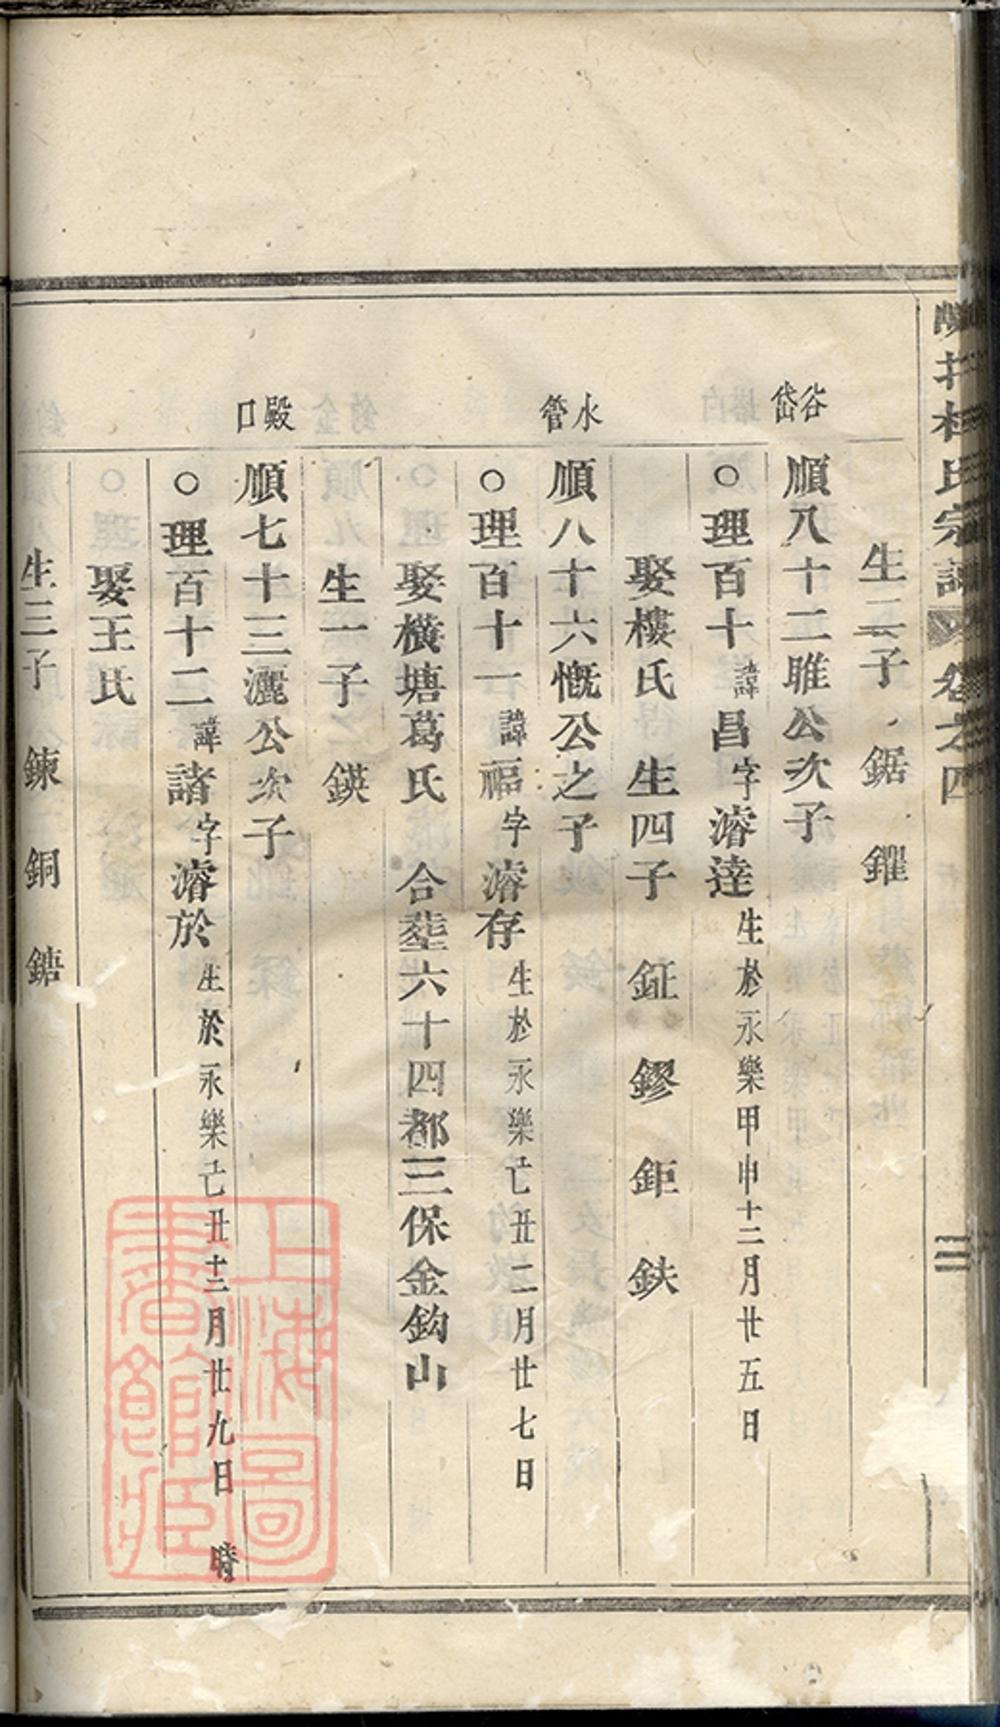 杜氏宗譜 卷之四
生二子 鋸 鑺
谷岱
順八十二睢公次子
○理百十諱昌字濬達生於永樂甲申十二月廿五日
娶樓氏 生四子 鉦 鏐 鉅 鈇
水管
順八十六慨公之子
○理百十一諱福字濬存生於永樂己丑二月廿七日
娶橫塘葛氏 合塟六十四都三保金鈎山
生一子 鍈
殿口
順七十三灑公次子
○理百十二諱諸字濬於生於永樂己丑十二月廿九日 時
娶王氏
生三子 鍊 銅 鎕
上海圖書館藏